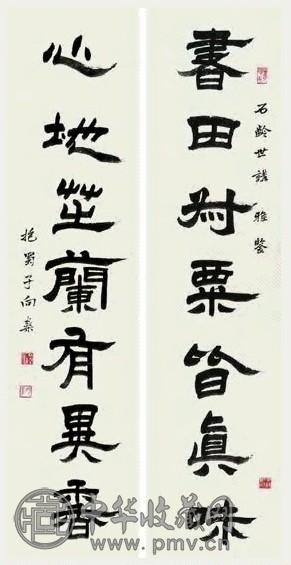 書田叔粟皆眞味
石齡世講 雅鑒
心地芝蘭有異香
抱蜀子向燊
中华收藏网
www.pmv.cn